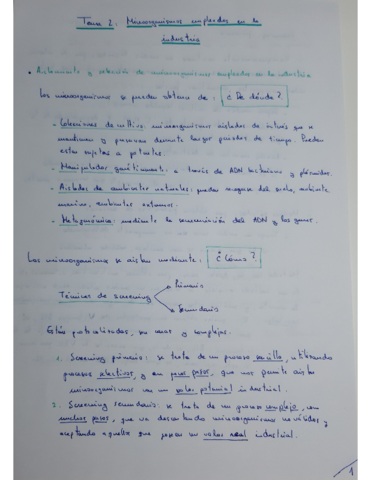 Tema 2: Microorganismos empleados en la
industria
• Aislamiento y selección de microorganismos empleados en la industria
Los microorganismos se pueden obtener de: ¿De dónde?
- Colecciones de cultivo: microorganismos aislados de interés que se
mantienen y preservan durante largos periodos de tiempo. Pueden
estar sujetos a patentes.
- Manipulados genéticamente: a través de ADN recombinante y plásmidos.
- Aislados de ambientes naturales: pueden recogerse del suelo, ambiente
marino, ambientes extremos.
- Metagenómica: mediante la secuenciación del ADN y los genes.
Los microorganismos se aislan mediante: ¿Cómo?
Técnicas de screening
Primario
Secundario
Están protocolizadas, son caras y complejas.
1. Screening primario: se trata de un proceso sencillo, utilizando
procesos selectivos, y en pocos pasos, que nos permite aislar
microorganismos con un valor potencial industrial.
2. Screening secundario: se trata de un proceso complejo, con
muchos pasos, que va descartando microorganismos no válidos y
aceptando aquellos que posean un valor real industrial.
1